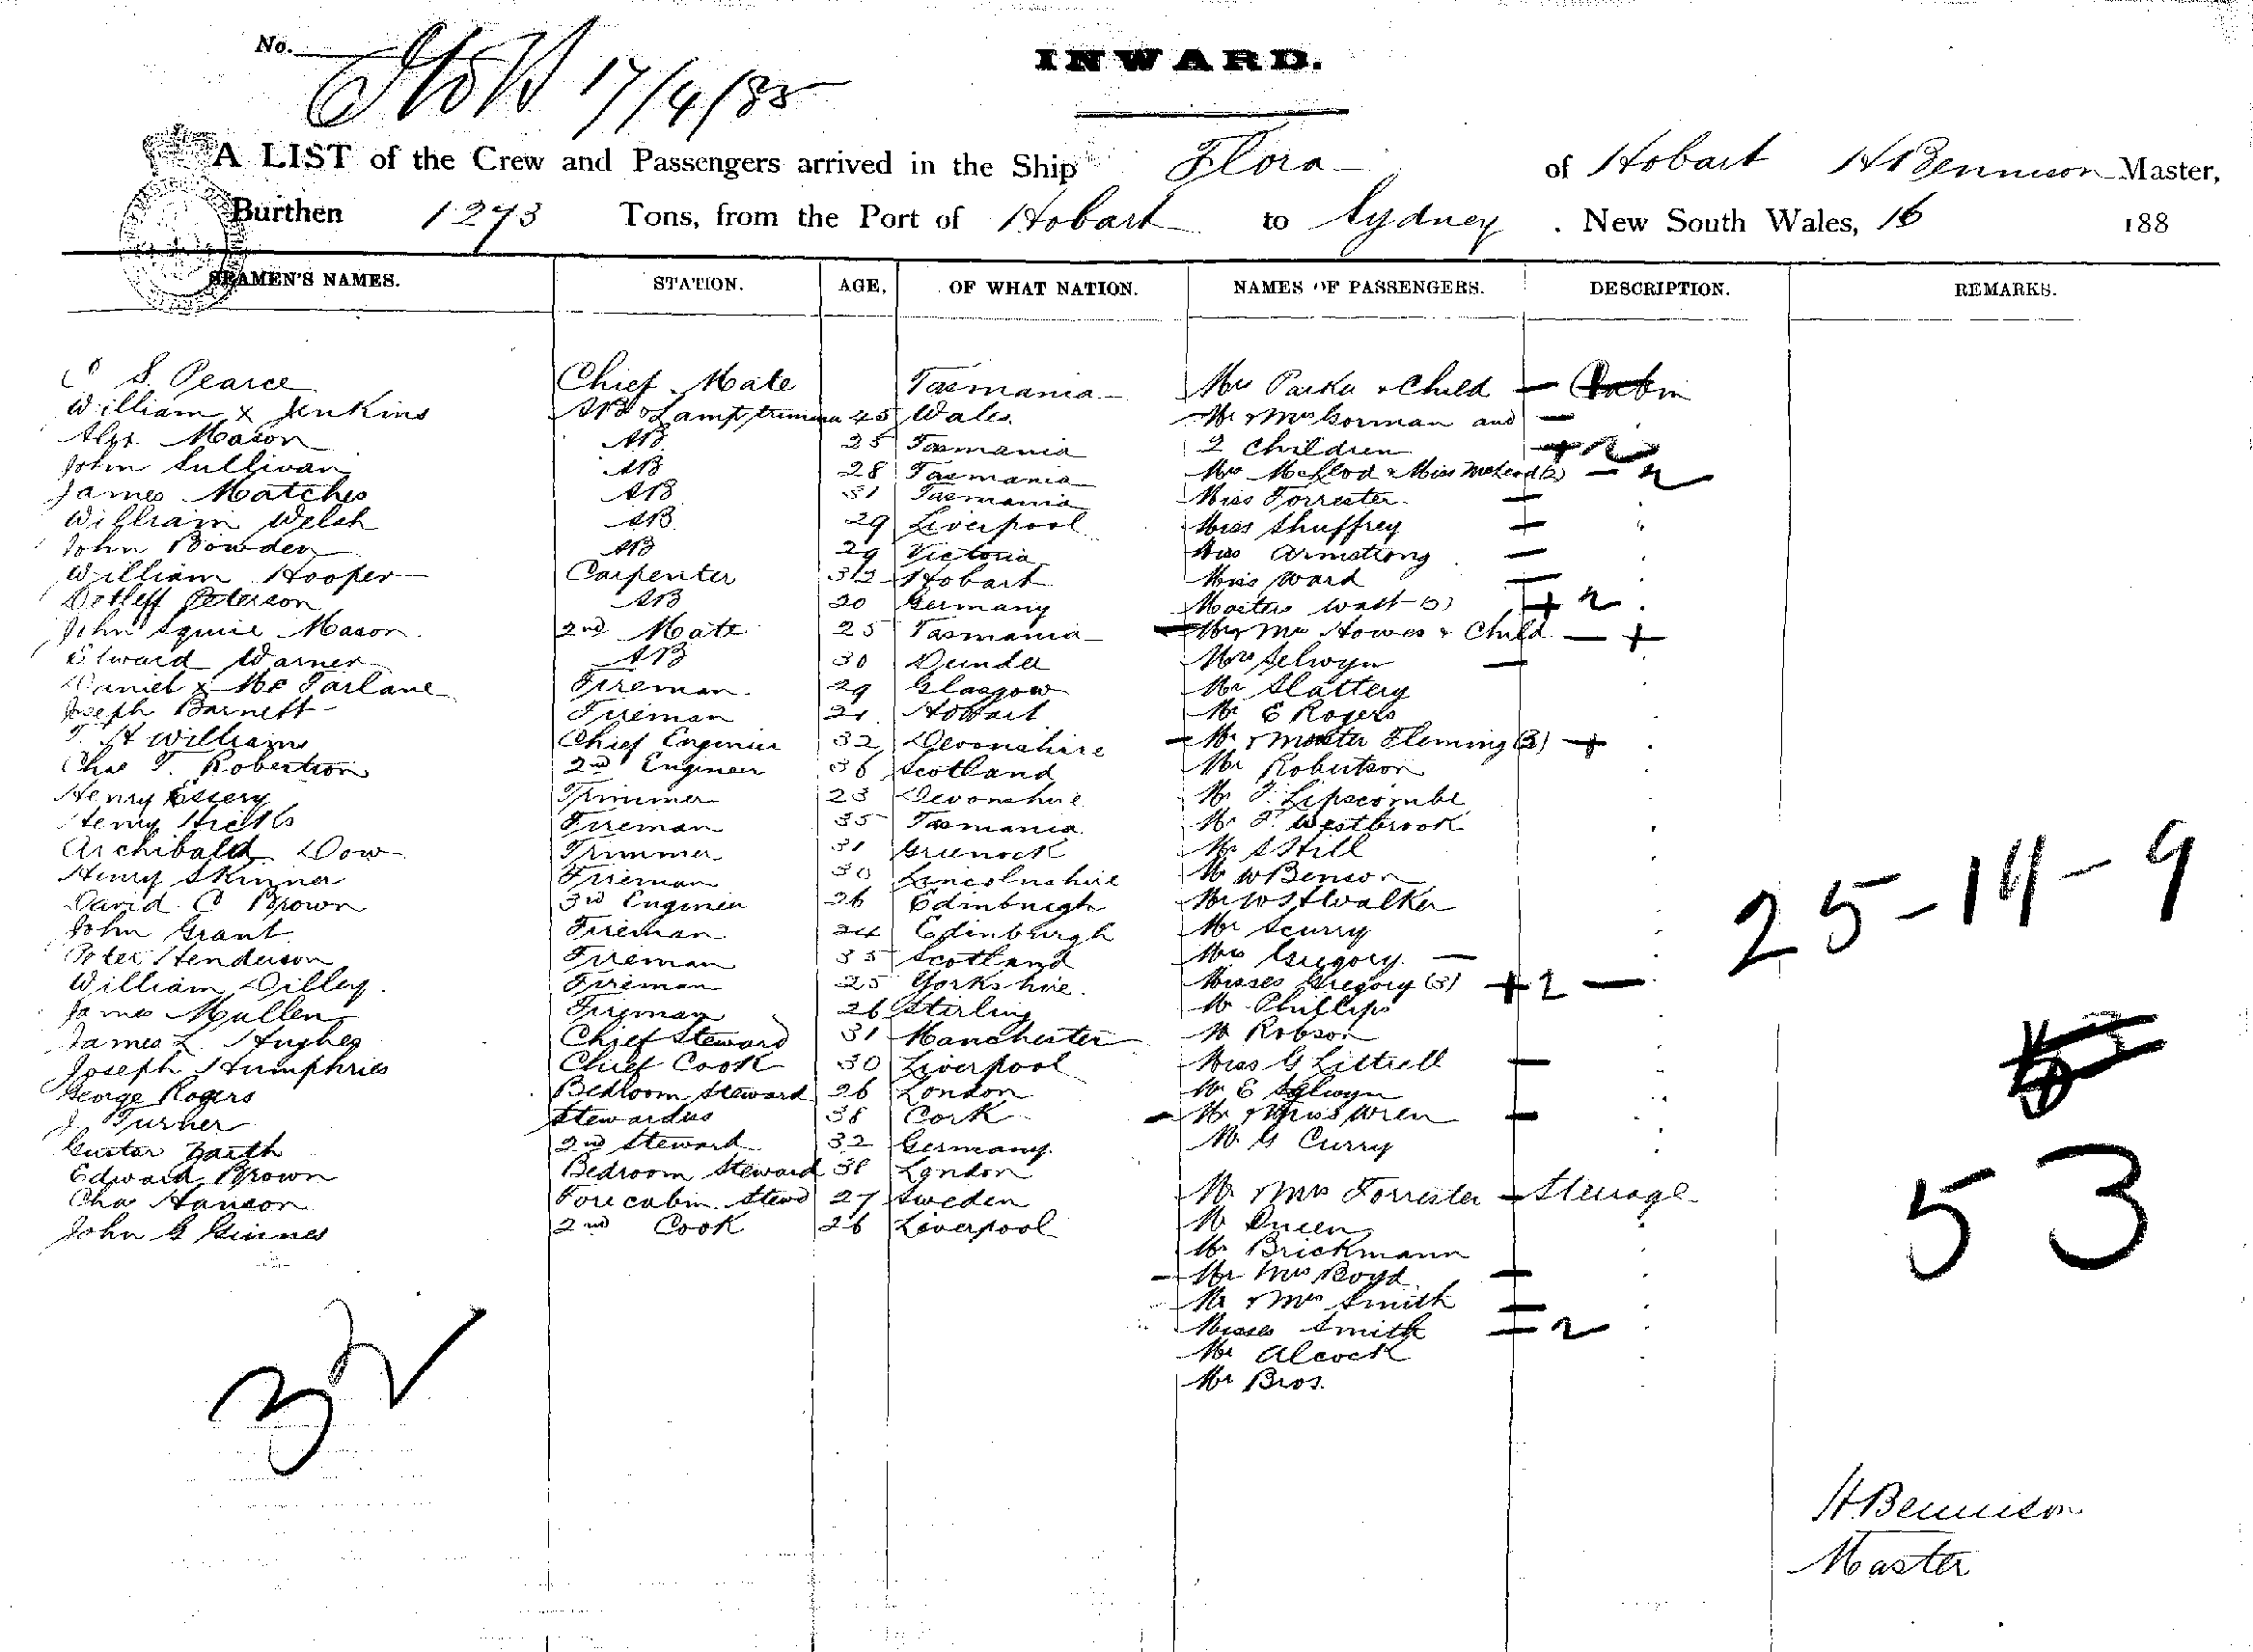 No.
17/4/85
INWARD.
A LIST of the Crew and Passengers arrived in the Ship Flora of Hobart H Bennison Master,
Burthen 1273 Tons, from the Port of Hobart to Sydney . New South Wales, 16 188
SEAMEN'S NAMES. STATION. AGE. OF WHAT NATION. NAMES OF PASSENGERS. DESCRIPTION. REMARKS.
S. Pearce Chief Mate Tasmania Mrs Parker & Child — Cabin
William x Jenkins AB & Lamptrimmer 45 Wales Mr & Mrs Gorman and —
Alex. Mason AB 25 Tasmania 2 Children + 2
John Sullivan AB 28 Tasmania Mrs McLeod & Miss McLeod (2) — 2
James Matches AB 31 Tasmania Miss Forrester —
William Welsh AB 29 Liverpool Miss Shuffrey — "
John Bowden AB 29 Victoria Miss Armstrong —
William Hooper Carpenter 32 Hobart Miss Ward —
Detleff Peterson AB 20 Germany Masters Watt (3) + 2
John Squire Mason 2nd Mate 25 Tasmania — Mr & Mrs Howes & Child — +
Edward Warner AB 30 Dundee Mrs Selwyn —
Daniel x McFarlane Fireman 29 Glasgow Mr Slattery
Joseph Barnett Fireman 21 Hobart Mr E Rogers
T. H Williams Chief Engineer 32 Devonshire — Mr & Master Fleming (2) +
Chas T. Robertson 2nd Engineer 36 Scotland Mr Robertson
Henry Essery Trimmer 23 Devonshire Mr T. Lipscombe
Henry Hicks Fireman 35 Tasmania Mr T. Westbrook
Archibald Dow Trimmer 31 Greenock Mr S Hill
Henry Skinner Fireman 30 Lincolnshire Mr W Benson
David C Brown 3rd Engineer 26 Edinburgh Mr W St Walker
John Grant Fireman 24 Edinburgh Mr Scurry
Peter Henderson Fireman 35 Scotland Mrs Gregory —
William Dilley Fireman 25 Yorkshire Misses Gregory (3) + 2 —
James Mullen Fireman 26 Stirling Mr Phillips
James L. Hughes Chief Steward 31 Manchester Mr Robson
Joseph Humphries Chief Cook 30 Liverpool Miss G Littrell —
George Rogers Bedroom Steward 26 London Mr E Selwyn
J. Turner Stewardess 38 Cork — Mr & Miss Wren —
Gustav Barth 2nd Steward 32 Germany Mr G Curry
Edward Brown Bedroom Steward 38 London
Chas Hanson Fore cabin Stewd 27 Sweden Mr & Mrs Forrester — Steerage
John G Ginnes 2nd Cook 26 Liverpool Mr Queen
Mr Brickmann
— Mr & Mrs Boyd —
Mr & Mrs Smith —
Misses Smith — 2
Mr Alcock
Mr Bros.
25-14-9
53
32
H Bennison
Master